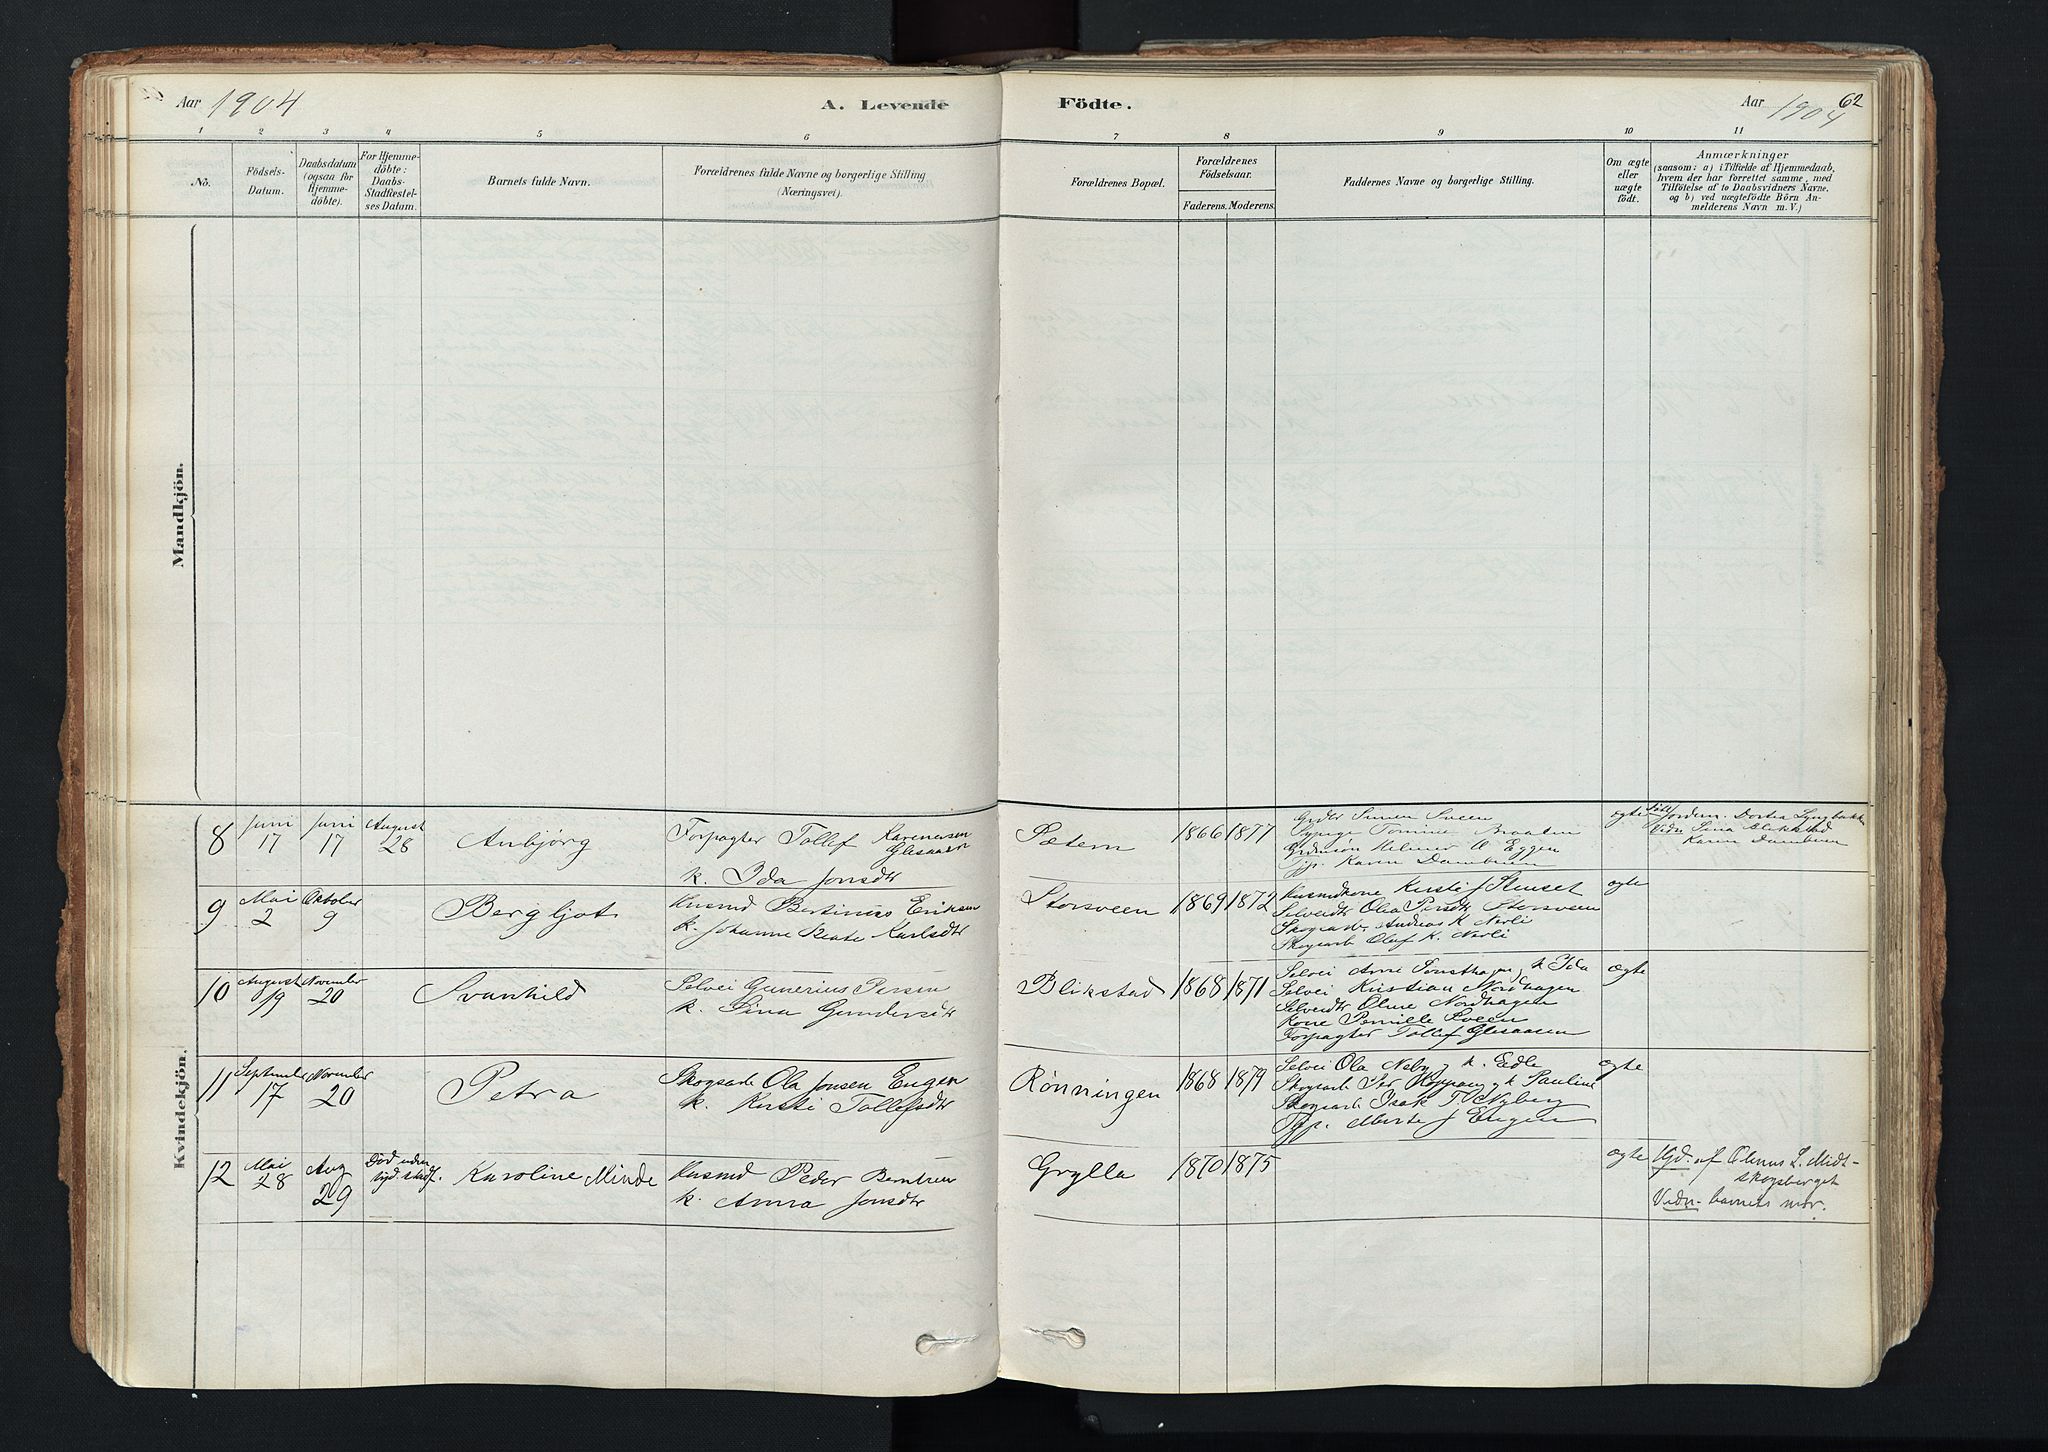 Aar 1904
A. Levende
Födte.
Aar 1904
62
1 2 3 4 5 6 7 8 9 10 11
No.
Födsels-
Datum.
Daabsdatum
(ogsaa for
Hjemme-
döbte).
For Hjemme-
döbte:
Daabs-
Stadfæstel-
ses Datum.
Barnets fulde Navn.
Forældrenes fulde Navne og borgerlige Stilling
(Næringsvei).
Forældrenes Bopæl.
Forældrenes
Födselsaar.
Faderens. Moderens.
Faddernes Navne og borgerlige Stilling.
Om ægte
eller
uægte
födt.
Anmærkninger
(saasom: a) i Tilfælde af Hjemmedaab,
hvem der har forrettet samme, med
Tilföielse af to Daabsvidners Navne.
og b) ved uægtefödte Börn An-
melderens Navn m. V.)
Mandkjön.
Kvindekjön.
8
Juni
17
Juni
17
August
28
Anbjørg
Forpagter Tollef Karenusen
Glesaaen
k. Ida Jonsdtr
Sætern
1866 1877
Simen Sveen
Braaten
Helmer O Eggen
Tjp. Karen Dambruen
ægte
Jordem. Dortea Lyngbakken
Vidn Sina Blikstad
Karen Dambruen
9
Mai
2
Oktober
9
Bergljot
Husmd Bertinius Eriksen
k. Johanne Beate Karlsdtr
Storsveen
1869 1872
Husmdkone Kirsti J Stenset
Selveidtr Olea Persdtr Storsveen
Andreas K Nerli
Skogsarb Olaf K. Nerli
ægte
10
August
19
November
20
Svanhild
Selvei Gunerius Persen
k. Sina Gundersdtr
Blikstad
1868 1871
Selvei Arne k Ida
Selvei Kristian Nordhagen
Selveidtr Oline Nordhagen
Kone Pernille Sveen
Forpagter Tollef Glesaaen
ægte
11
September
17
November
20
Petra
Skogsarb Ola Jonsen Engen
k. Kirsti Tollefsdtr
Rønningen
1868 1879
Selvei Ola Neby k. Edle
Skogsarb Per Koppang k Pauline
Skogsarb Isak T Nyberg
Tjp. Marte J Engen
ægte
12
Mai
28
Aug
29
Død uden
Karoline Minde
Husmd Peder Berntsen
k. Anna Jonsdtr
Grylla
1870 1875
ægte
Hjd. af Olenus L. Midt-
skogsberget
Vidn- barnets mor.